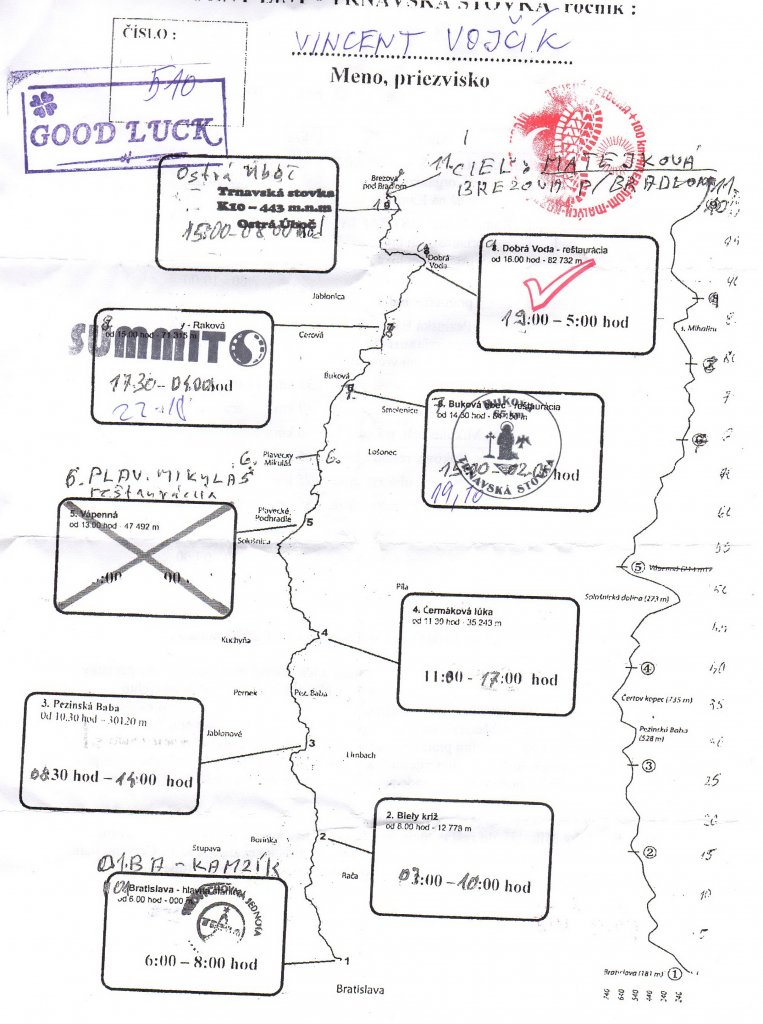 TRNAVSKÁ STOVKA ročník :
ČÍSLO :
510
VINCENT VOJČÍK
Meno, priezvisko
GOOD LUCK
11. CIEL: MATEJKOVÁ
BREZOVÁ P/BRADLOM
Brezová
pod Bradlom
Ostrá Úboč
Trnavská stovka
K10 – 443 m.n.m
Ostrá Úboč
15:00 - 08:00 hod
Dobrá
Voda
8. Dobrá Voda - reštaurácia
od 16.00 hod - 82 732 m
19:00 – 5:00 hod
Jablonica
Cerová
- Raková
od 15.00 hod - 71 315 m
SUMMIT
17.30 – 04.00 hod
s. Mihalinu
Buková
Smolenice
Buková obec - reštaurácia
Buková
65 km
TRNAVSKÁ STOVKA
hod
19,10
Plavecký
Mikuláš
6.
6.
Lošonec
6. PLAV. MIKULÁŠ
reštaurácia
5. Vápenná
od 13.00 hod - 47 492 m
:00 00
Plavecké
Podhradie
5
Sološnica
Píla
Sološnická dolina (273 m)
4. Čermáková lúka
od 11.30 hod - 35 243 m
11:00 - 17:00 hod
4
Kuchyňa
Pernek
Pez. Baba
Čertov kopec (735 m)
Pezinská Baba
(528 m)
3. Pezinská Baba
0d 10.30 hod - 30120 m
08.30 hod - 14:00 hod
Jablonové
3
Limbach
2. Biely kríž
od 8.00 hod - 12 773 m
03:00 –10:00 hod
Borinka
2
Stupava
Rača
01.BA - KAMZÍK
01 Bratislava - hlavná
od 6.00 hod - 000 m
JEDNOTA
6:00 – 8:00 hod
1
Bratislava
Bratislava (181 m) 1
5
4
3
2
55
35
25
20
15
10
5
740
640
540
440
340
240